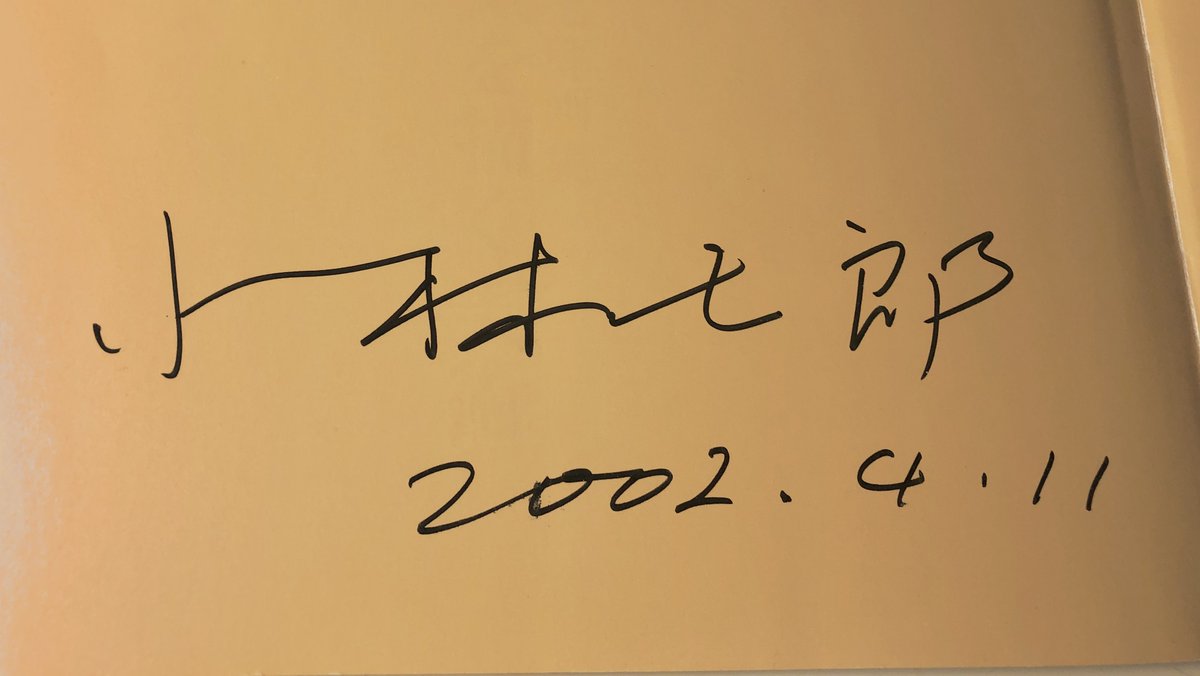 小林七郎
2002.4.11